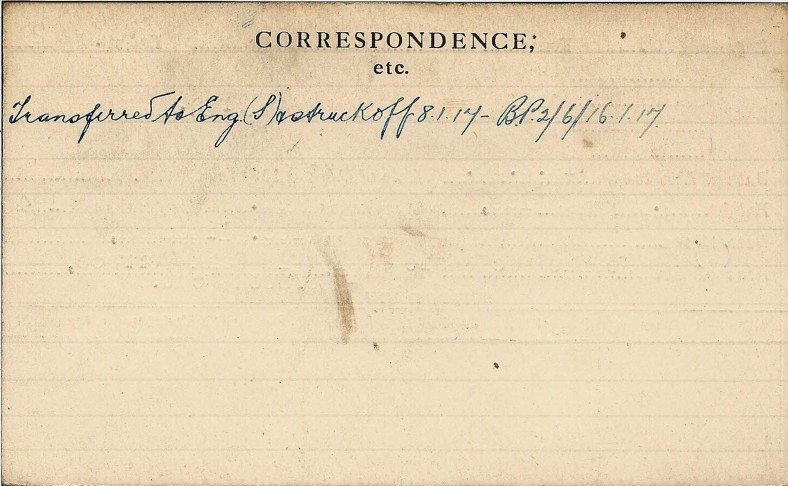 CORRESPONDENCE,
etc.
Transferred to Eng.(S) & struck off 8.1.17 - B.P. 2/6/16.1.17.